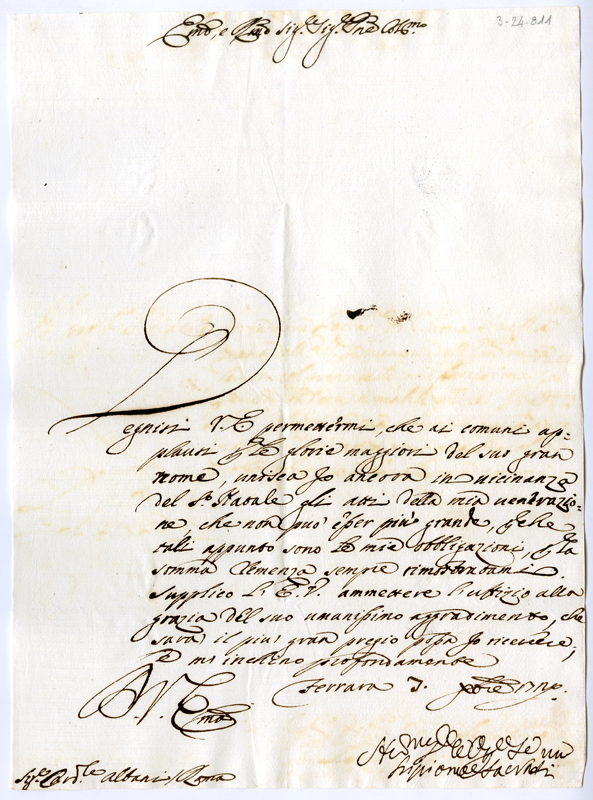 3-24-811
Emo, e Rmo Sig.e Sig.e Pne Col.mo
Degnisi V. E permettermi che ai comuni ap=
plausi p le glorie maggiori del suo gran
nome, unisca Jo ancora in vicinanza
del S. Natale gli atti della mia venerazio=
ne, che non può esser più grande, perche
tali appunto sono le mie obbligazioni, p la
somma Clemenza sempre rimostratami
supplico L' E. V. ammettere l'uffizio alla
grazia del suo umanissimo aggradimento, che
sarà il più gran pregio possa Jo ricevere;
e mi inchino profondamente
D. V. Ema Ferrara
Sig.e Card.le Albani Roma